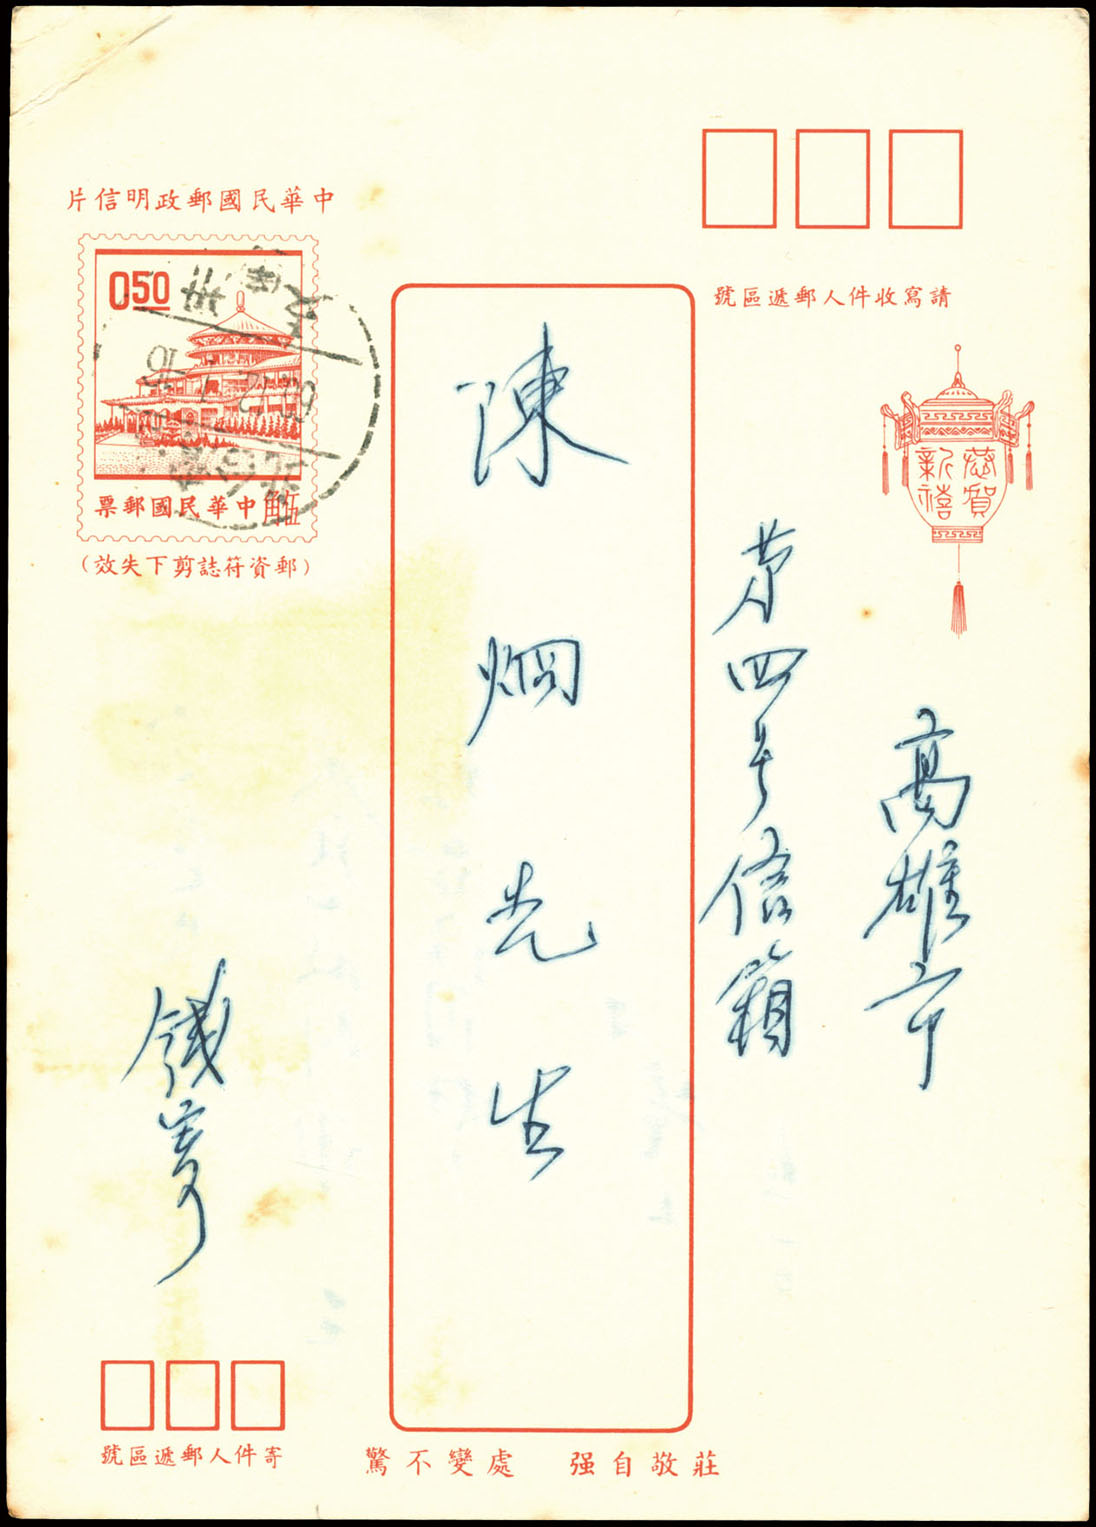 中華民國郵政明信片
0.50
中華民國郵票
伍角
(郵資符誌剪下失效)
請寫收件人郵遞區號
恭賀
新禧
高雄市
第四号信箱
陳炯先生
錢寄
寄件人郵遞區號
莊敬自强 處變不驚